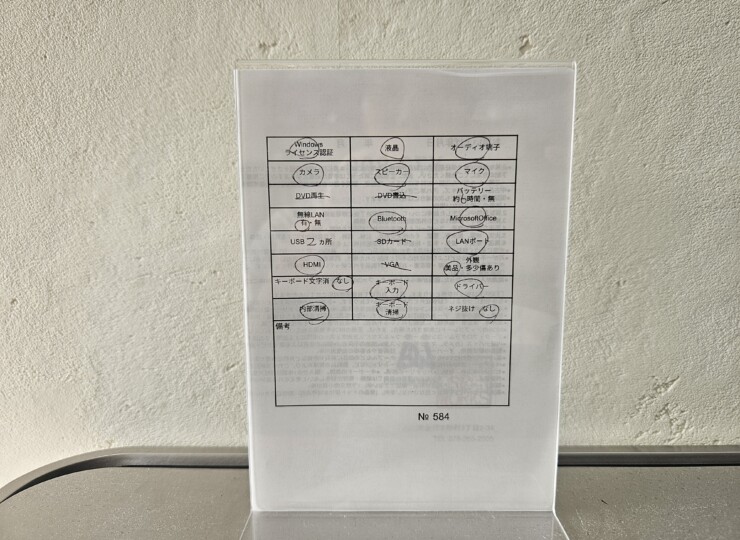 Windows
ライセンス認証
液晶
オーディオ端子
カメラ
スピーカー
マイク
DVD再生
DVD書込
バッテリー
約6時間・無
無線LAN
有・無
Bluetooth
MicrosoftOffice
USB 2 ヵ所
SDカード
LANポート
HDMI
VGA
外観
美品・多少傷あり
キーボード文字消 なし
キーボード
入力
ドライバー
内部清掃
キーボード
清掃
ネジ抜け なし
備考
№ 584